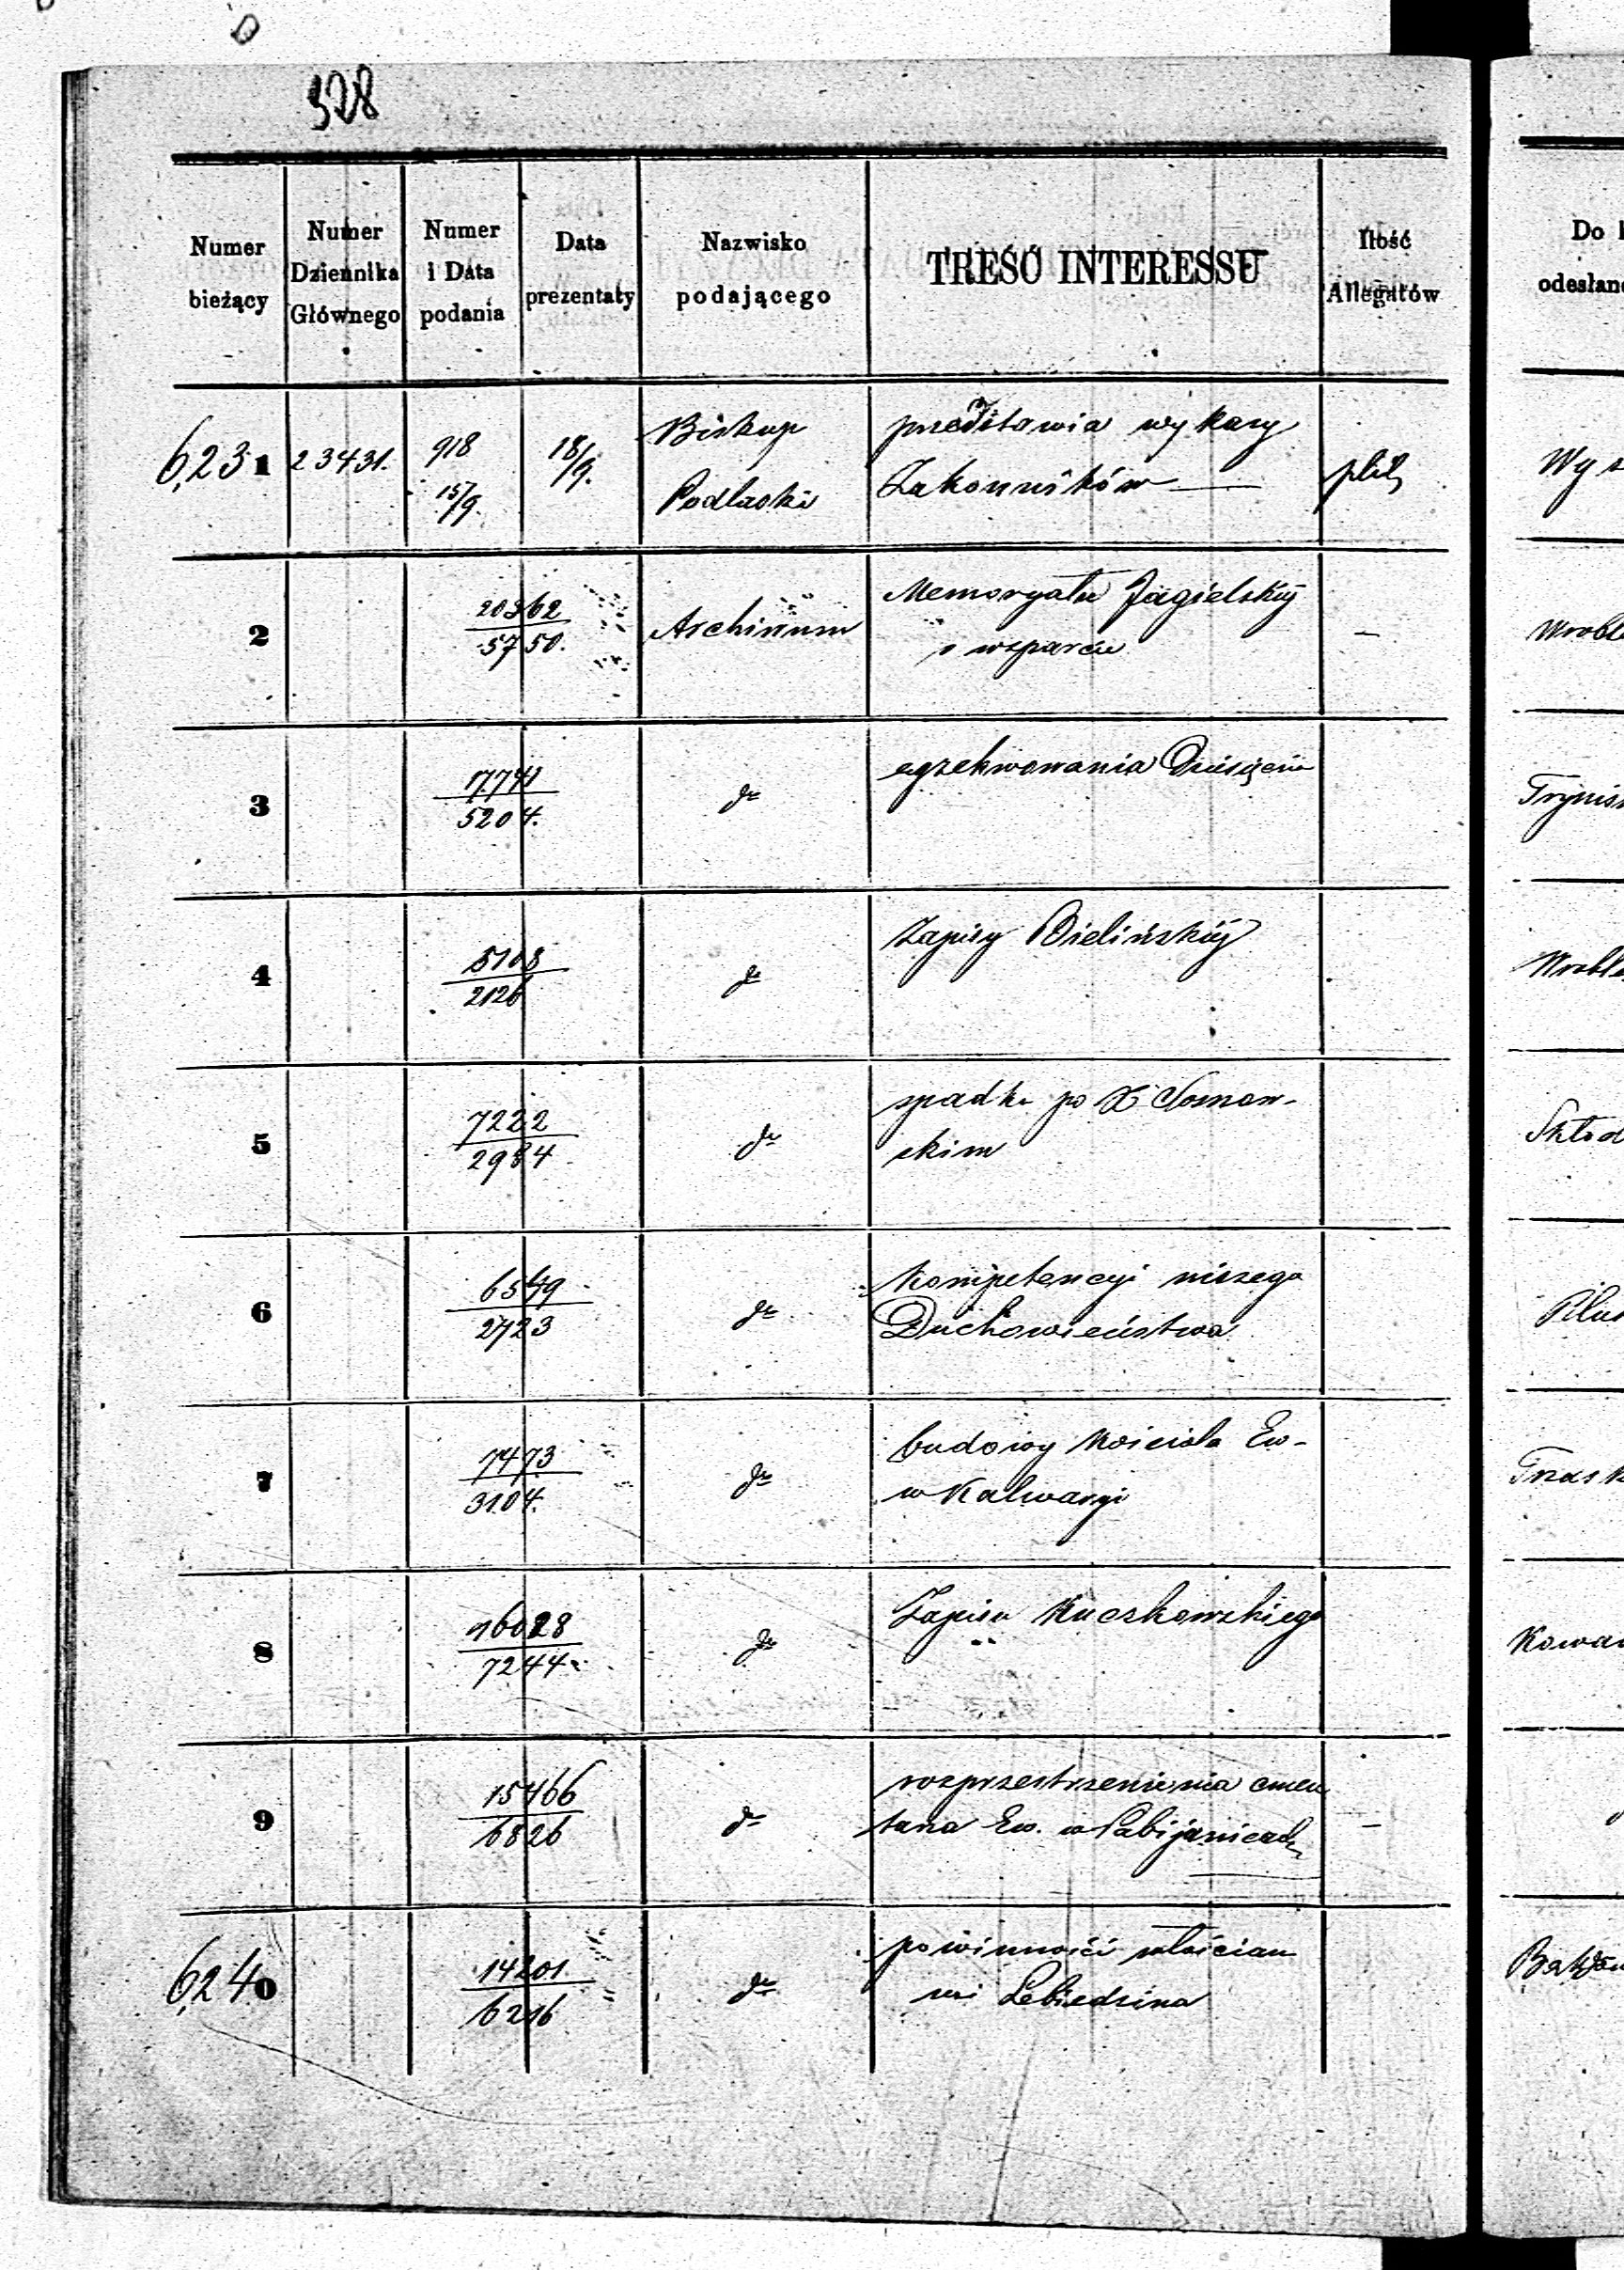 328
Numer bieżący
Numer Dziennika Głównego
Numer i Data podania
Data prezentaty
Nazwisko podającego
TREŚĆ INTERESSU
Ilość Allegatów
Do
odesłan
6,231 23431. 918 15/9. 18/9. Biskup Podlaski
przedstawia wykazy
Zakonników —
plik
Wy
2 20362 / 5750. Archiwum
Memoryału Jagielskiej
o wsparcie
—
Wrobl
3 17741 / 5204. do
egzekwowania Dziesięcin
4 5108 / 2126 do
Zapisy Bielińskiej
Wrobl
5 7222 / 2984 do
spadku po X
skim
Skłod
6 6549 / 2723 do
Kompetencyi niższego
Duchowieństwa
7 7473 / 3104. do
budowy Kościoła Ew-
w Kalwaryi
8 16028 / 7244 do
Zapisu Kuczkowskiego
Kowa
9 15466 / 6826 do
rozprzestrzenienia cmen
tarza Ew. w Pabijanicach
—
6,240 14201 / 6216 do
powinności włościan
wsi Lebiedzina